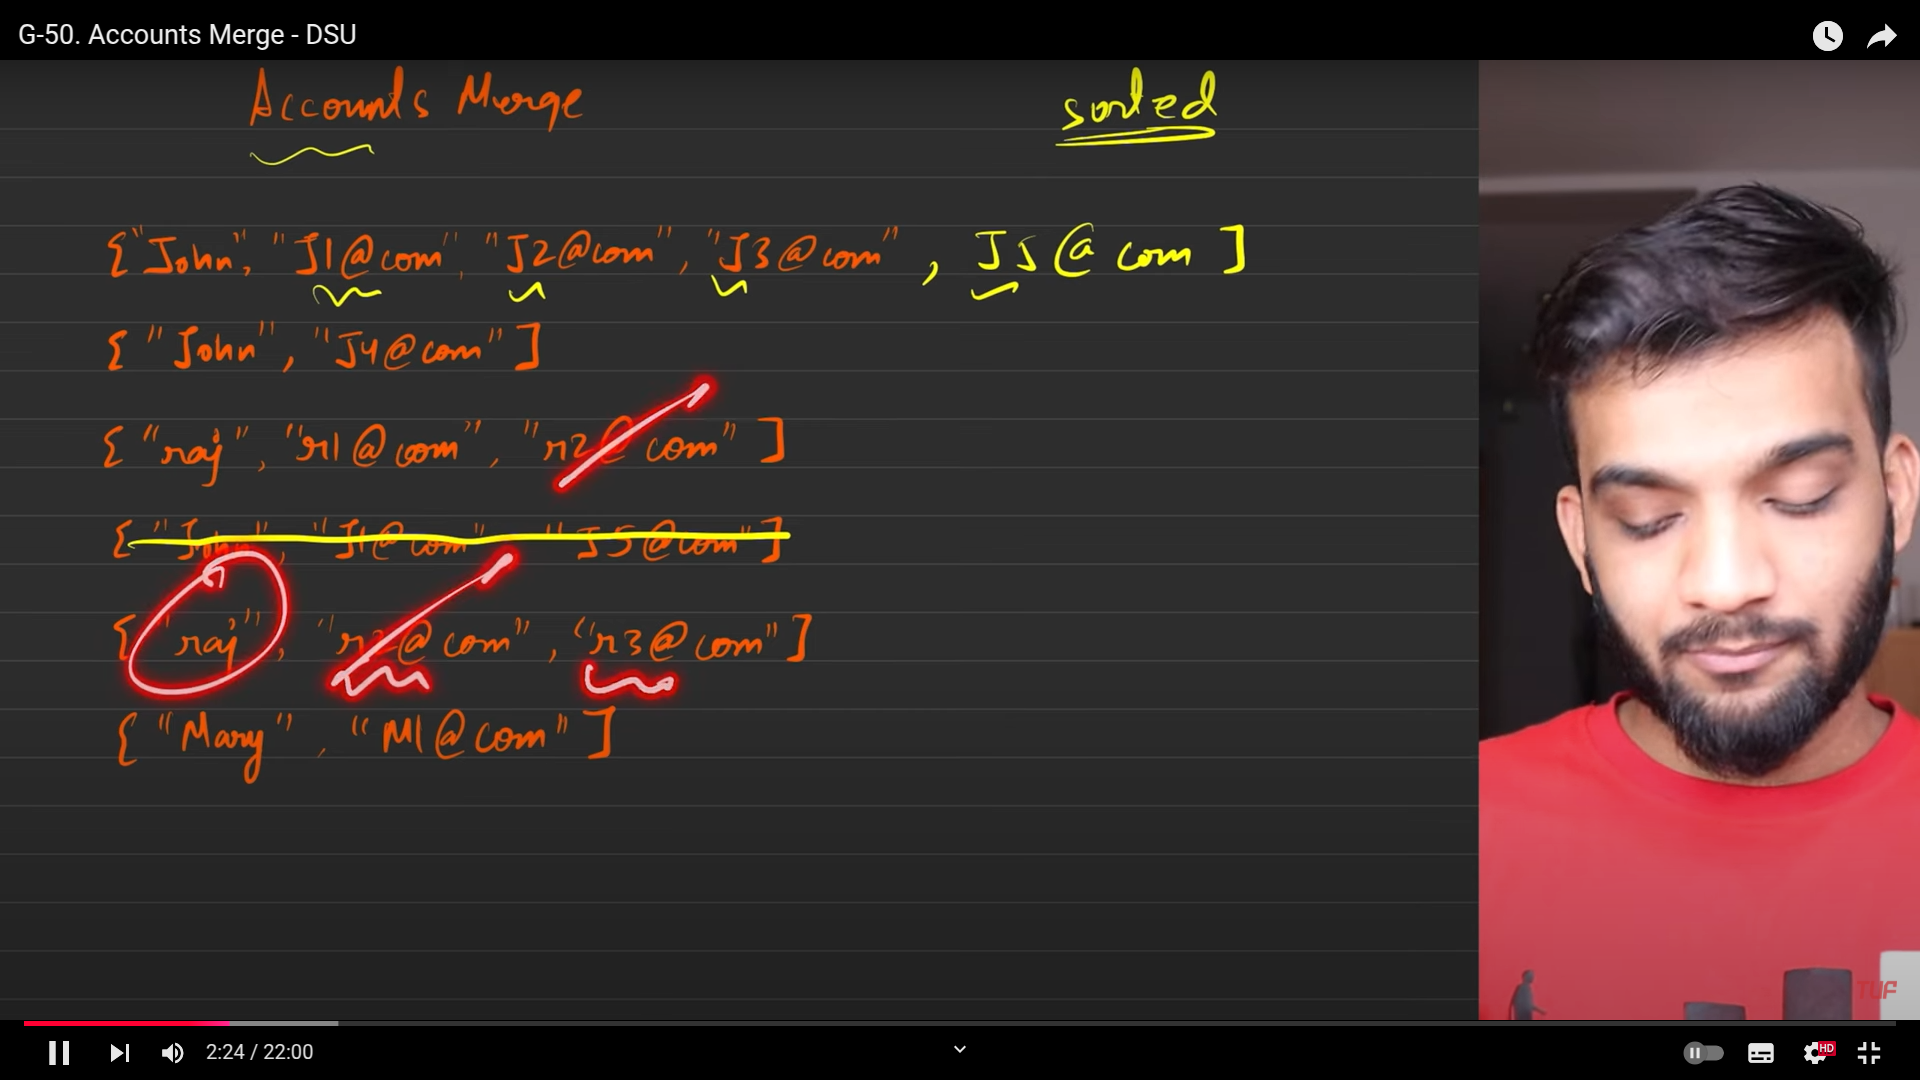 G-50. Accounts Merge - DSU
Accounts Merge
sorted
{"John", "J1@com", "J2@com", "J3@com", J5@com]
{"John", "J4@com"]
{"raj", "r1@com", "r2@com"]
{"John", "J1@com", "J5@com"]
{"raj", "r2@com", "r3@com"]
{"Mary", "M1@com"]
TUF
2:24 / 22:00
HD